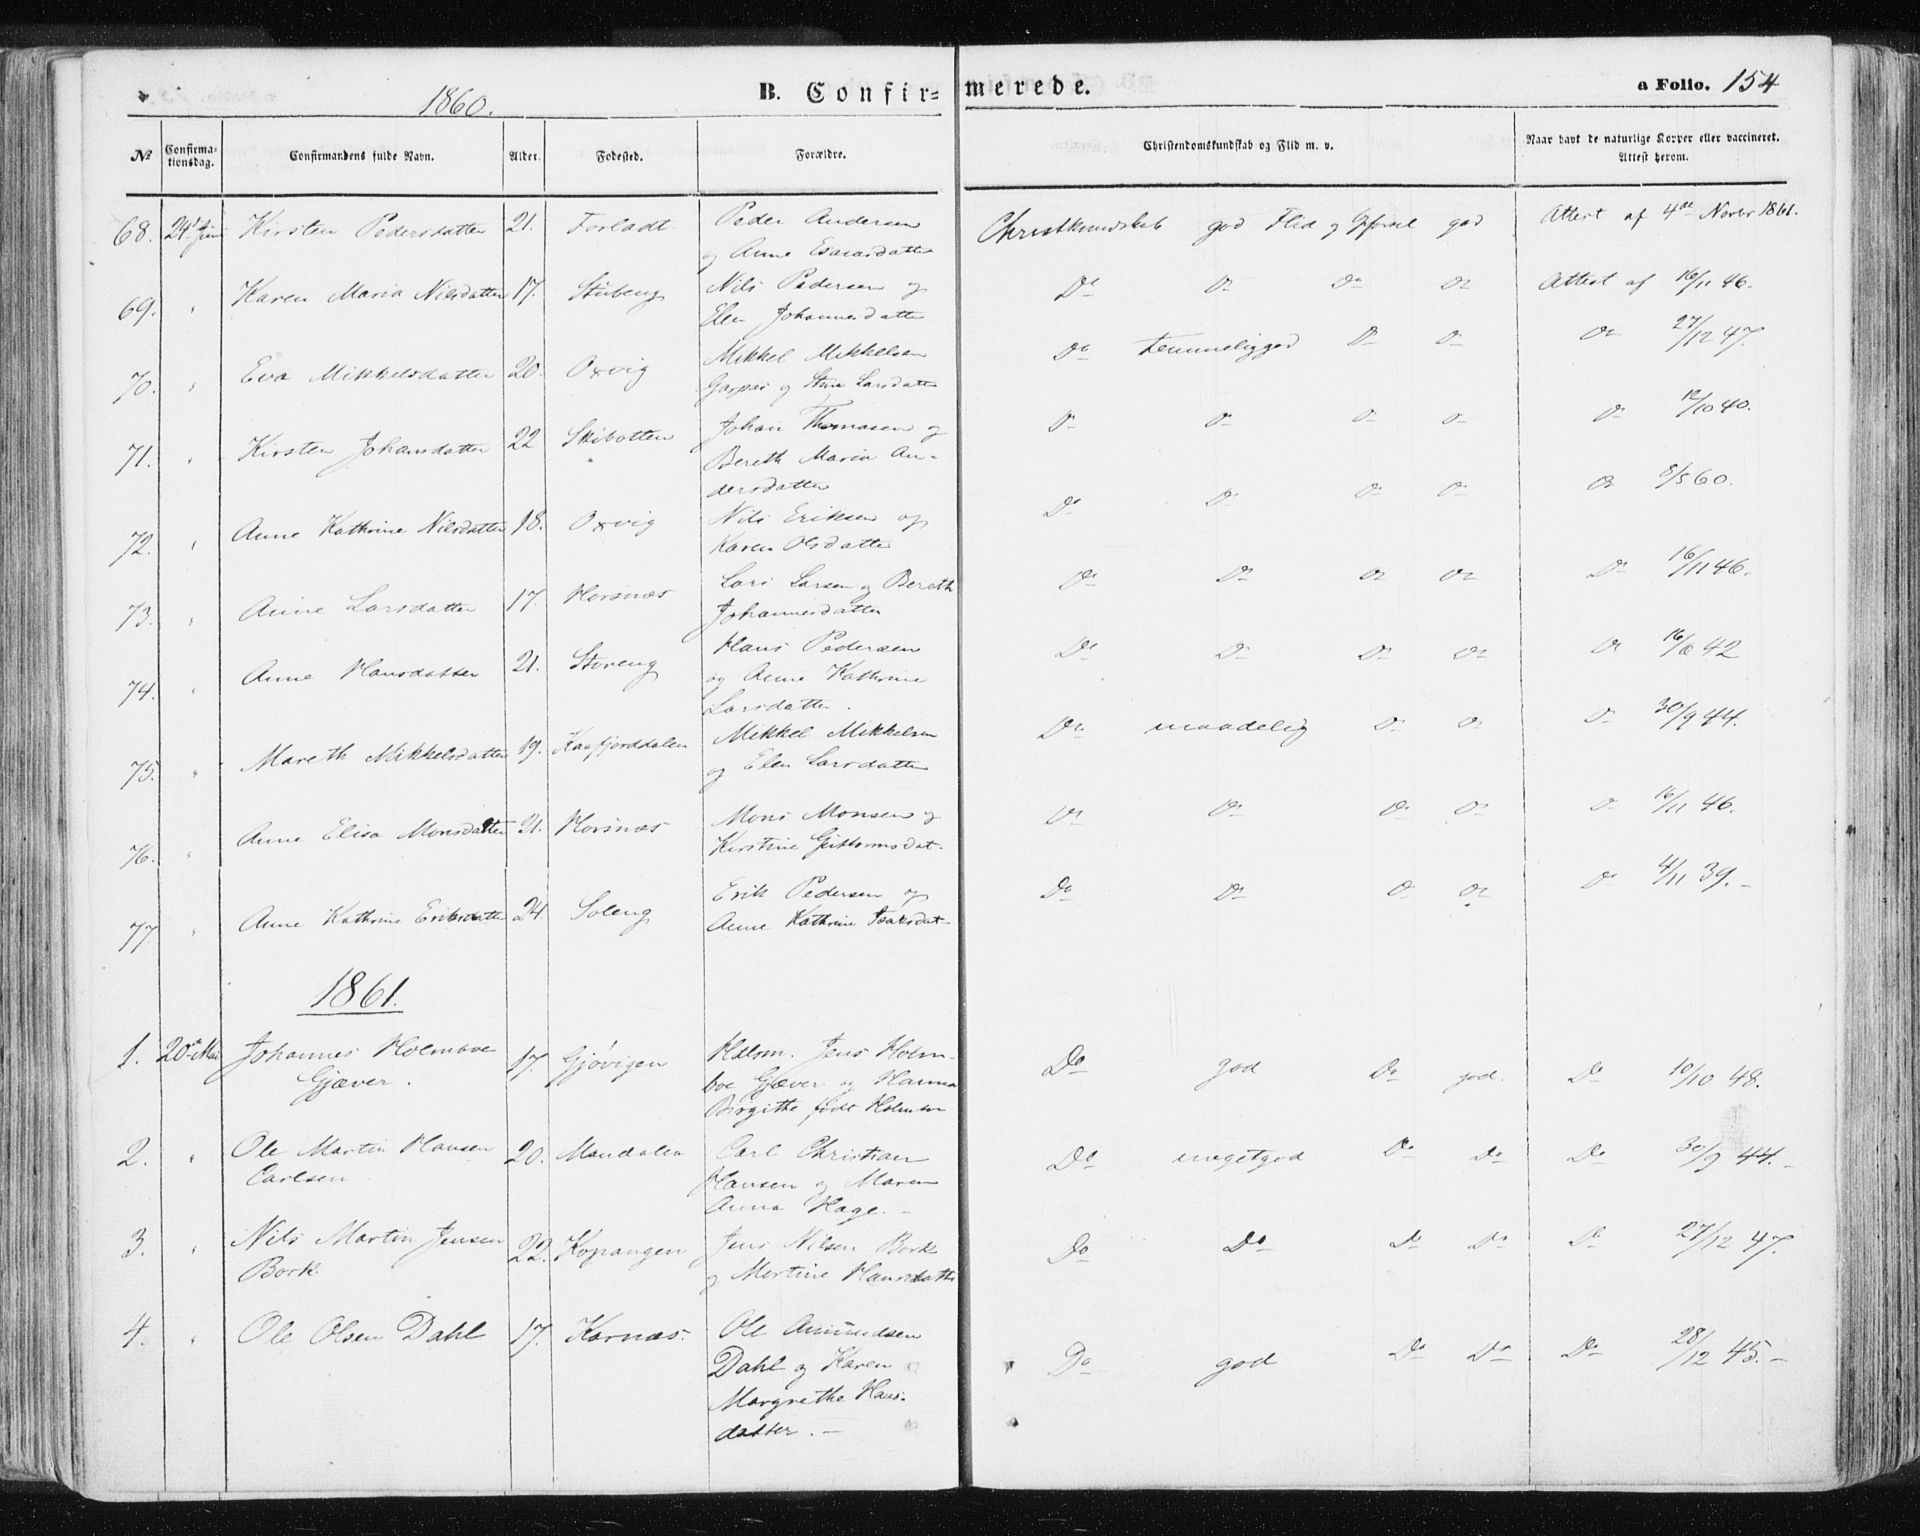 1860. B. Confirmerede. a Folio. 154
№ Confirmationsdag. Confirmandens fulde Navn. Alder. Fødested. Forældre. Christendomskundskab og Flid m. v. Naar havt de naturlige Kopper eller vaccineret. Attest herom.
68. 24de Juni Kirsten Pedersdatter 21. Forladt. Peder Andersen Christkundskab god Flid og god Attest af 4de Novbr 1861.
og Anne Esaiasdatter
69. " Karen Maria Nilsdatter 17. Stubeng Nils Pedersen og Do Do Do Do Attest af 16/11 46.
Elen Johannesdatter
70. " Eva Mikkelsdatter 20. Oxvig Mikkel Mikkelsen Do temmeliggod Do Do Do 27/12 47.
Gaspar og Stine Larsdatter
71. " Kirsten Johansdatter 22 Skibotten Johan Thomasen og Do Do Do Do Do 12/10 40.
Bereth Maria An-
dersdatter
72. " Anne Kathrine Nilsdatter 18. Oxvig Nils Eriksen og Do Do Do Do Do 8/5 60.
Karen Olsdatter
73. " Anne Larsdatter 17. Horsnæs Lars Larsen og Bereth Do Do Do Do Do 16/11 46.
Johannesdatter
74. " Anne Hansdatter 21. Storeng Hans Pedersen Do Do Do Do Do 16/6 42
og Anne Kathrine
Larsdatter.
75. " Mareth Mikkelsdatter 19. Kaafjorddalen Mikkel Mikkelsen Do maadelig Do Do Do 30/9 44.
og Elen Larsdatter
76. " Anne Elisa Monsdatter 21. Horsnæs Mons Monsen og Do Do Do Do Do 16/11 46.
Kirstine Guttormsdat-
77. " Anne Kathrine Eriksdatter 24. Soleng Erik Pedersen og Do Do Do Do Do 4/11 39. -
Anne Kathrine Isaksdat-
1861.
1. 20de Mai Johannes Holmboe 17. Gjøvigen Hdlsm. Jens Holm- Do god Do god. Do 10/10 48.
Gjæver. boe Gjæver og Hanna
Birgithe, født Holmboe
2. " Ole Martin Hansen 20. Mandalen Carl Christian Do megetgod Do Do Do 30/9 44. -
Carlsen Hansen og Maren
Anna Hage. -
3. " Nils Martin Jensen 22. Kopangen Jens Nilsen Bork Do Do Do Do Do 27/12 47.
Bork og Martine Hansdatter
4. " Ole Olsen Dahl 17. Karnæs. Ole Amundsen Do god Do Do Do 28/12 45. -
Dahl og Karen
Margrethe Hans-
datter. -